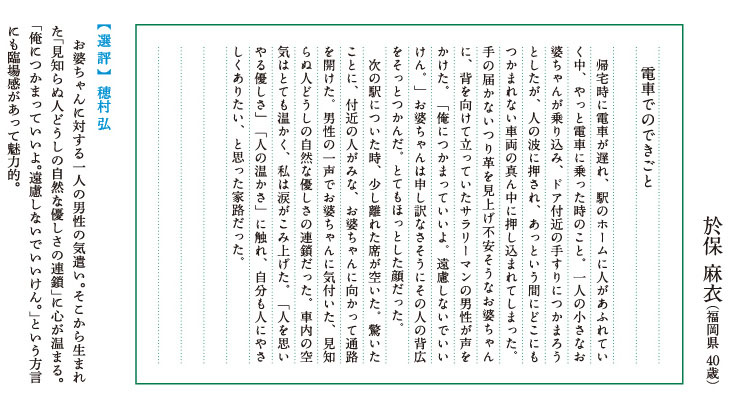 於保 麻衣（福岡県 40歳）
電車でのできごと
帰宅時に電車が遅れ、駅のホームに人があふれてい
く中、やっと電車に乗った時のこと。一人の小さなお
婆ちゃんが乗り込み、ドア付近の手すりにつかまろう
としたが、人の波に押され、あっという間にどこにも
つかまれない車両の真ん中に押し込まれてしまった。
手の届かないつり革を見上げ不安そうなお婆ちゃん
に、背を向けて立っていたサラリーマンの男性が声を
かけた。「俺につかまっていいよ。遠慮しないでいい
けん。」お婆ちゃんは申し訳なさそうにその人の背広
をそっとつかんだ。とてもほっとした顔だった。
次の駅についた時、少し離れた席が空いた。驚いた
ことに、付近の人がみな、お婆ちゃんに向かって通路
を開けた。男性の一声でお婆ちゃんに気付いた、見知
らぬ人どうしの自然な優しさの連鎖だった。車内の空
気はとても温かく、私は涙がこみ上げた。「人を思い
やる優しさ」「人の温かさ」に触れ、自分も人にやさ
しくありたい、と思った家路だった。
【選評】穂村 弘
お婆ちゃんに対する一人の男性の気遣い。そこから生まれ
た「見知らぬ人どうしの自然な優しさの連鎖」に心が温まる。
「俺につかまっていいよ。遠慮しないでいいけん。」という方言
にも臨場感があって魅力的。